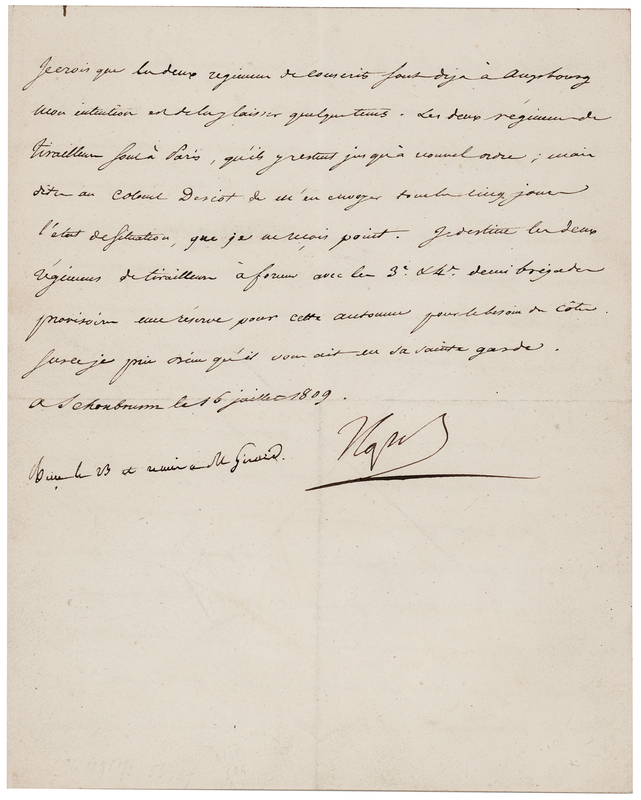 Je crois que les deux régimens de conscrits sont déja à Augsbourg
mon intention est de les y laisser quelque tems. Les deux régimens de
tirailleurs sont à Paris, qu'ils y restent jusqu'à nouvel ordre ; mais
dites au Colonel Deriot de m'en envoyer tous les cinq jours
l'état de situation, que je ne reçois point. Je destine les deux
régimens de tirailleurs à former avec les 3e. & 4e. demi brigades
provisoires une réserve pour cette automne pour le besoin des côtes.
Sur ce je prie Dieu qu'il vous ait en sa sainte garde.
à Schonbrunn le 16 juillet 1809.
Np
le 23 et remis à M Girard.